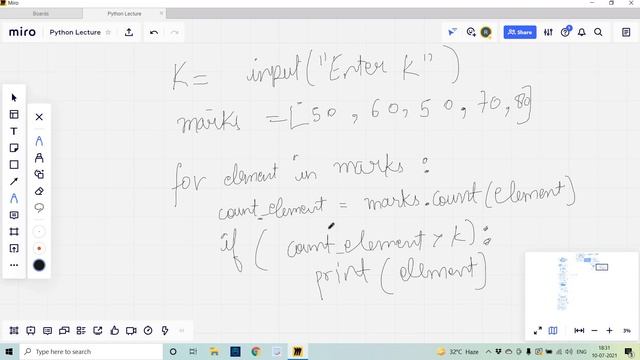 Miro
Boards
Python Lecture
miro
Python Lecture
R
Share
K= input("Enter K")
marks =[50, 60, 50, 70, 80]
for element in marks :
count_element = marks.count(element)
if ( count_element > K):
print (element)
3%
Type here to search
32°C Haze
ENG
18:31
10-07-2021